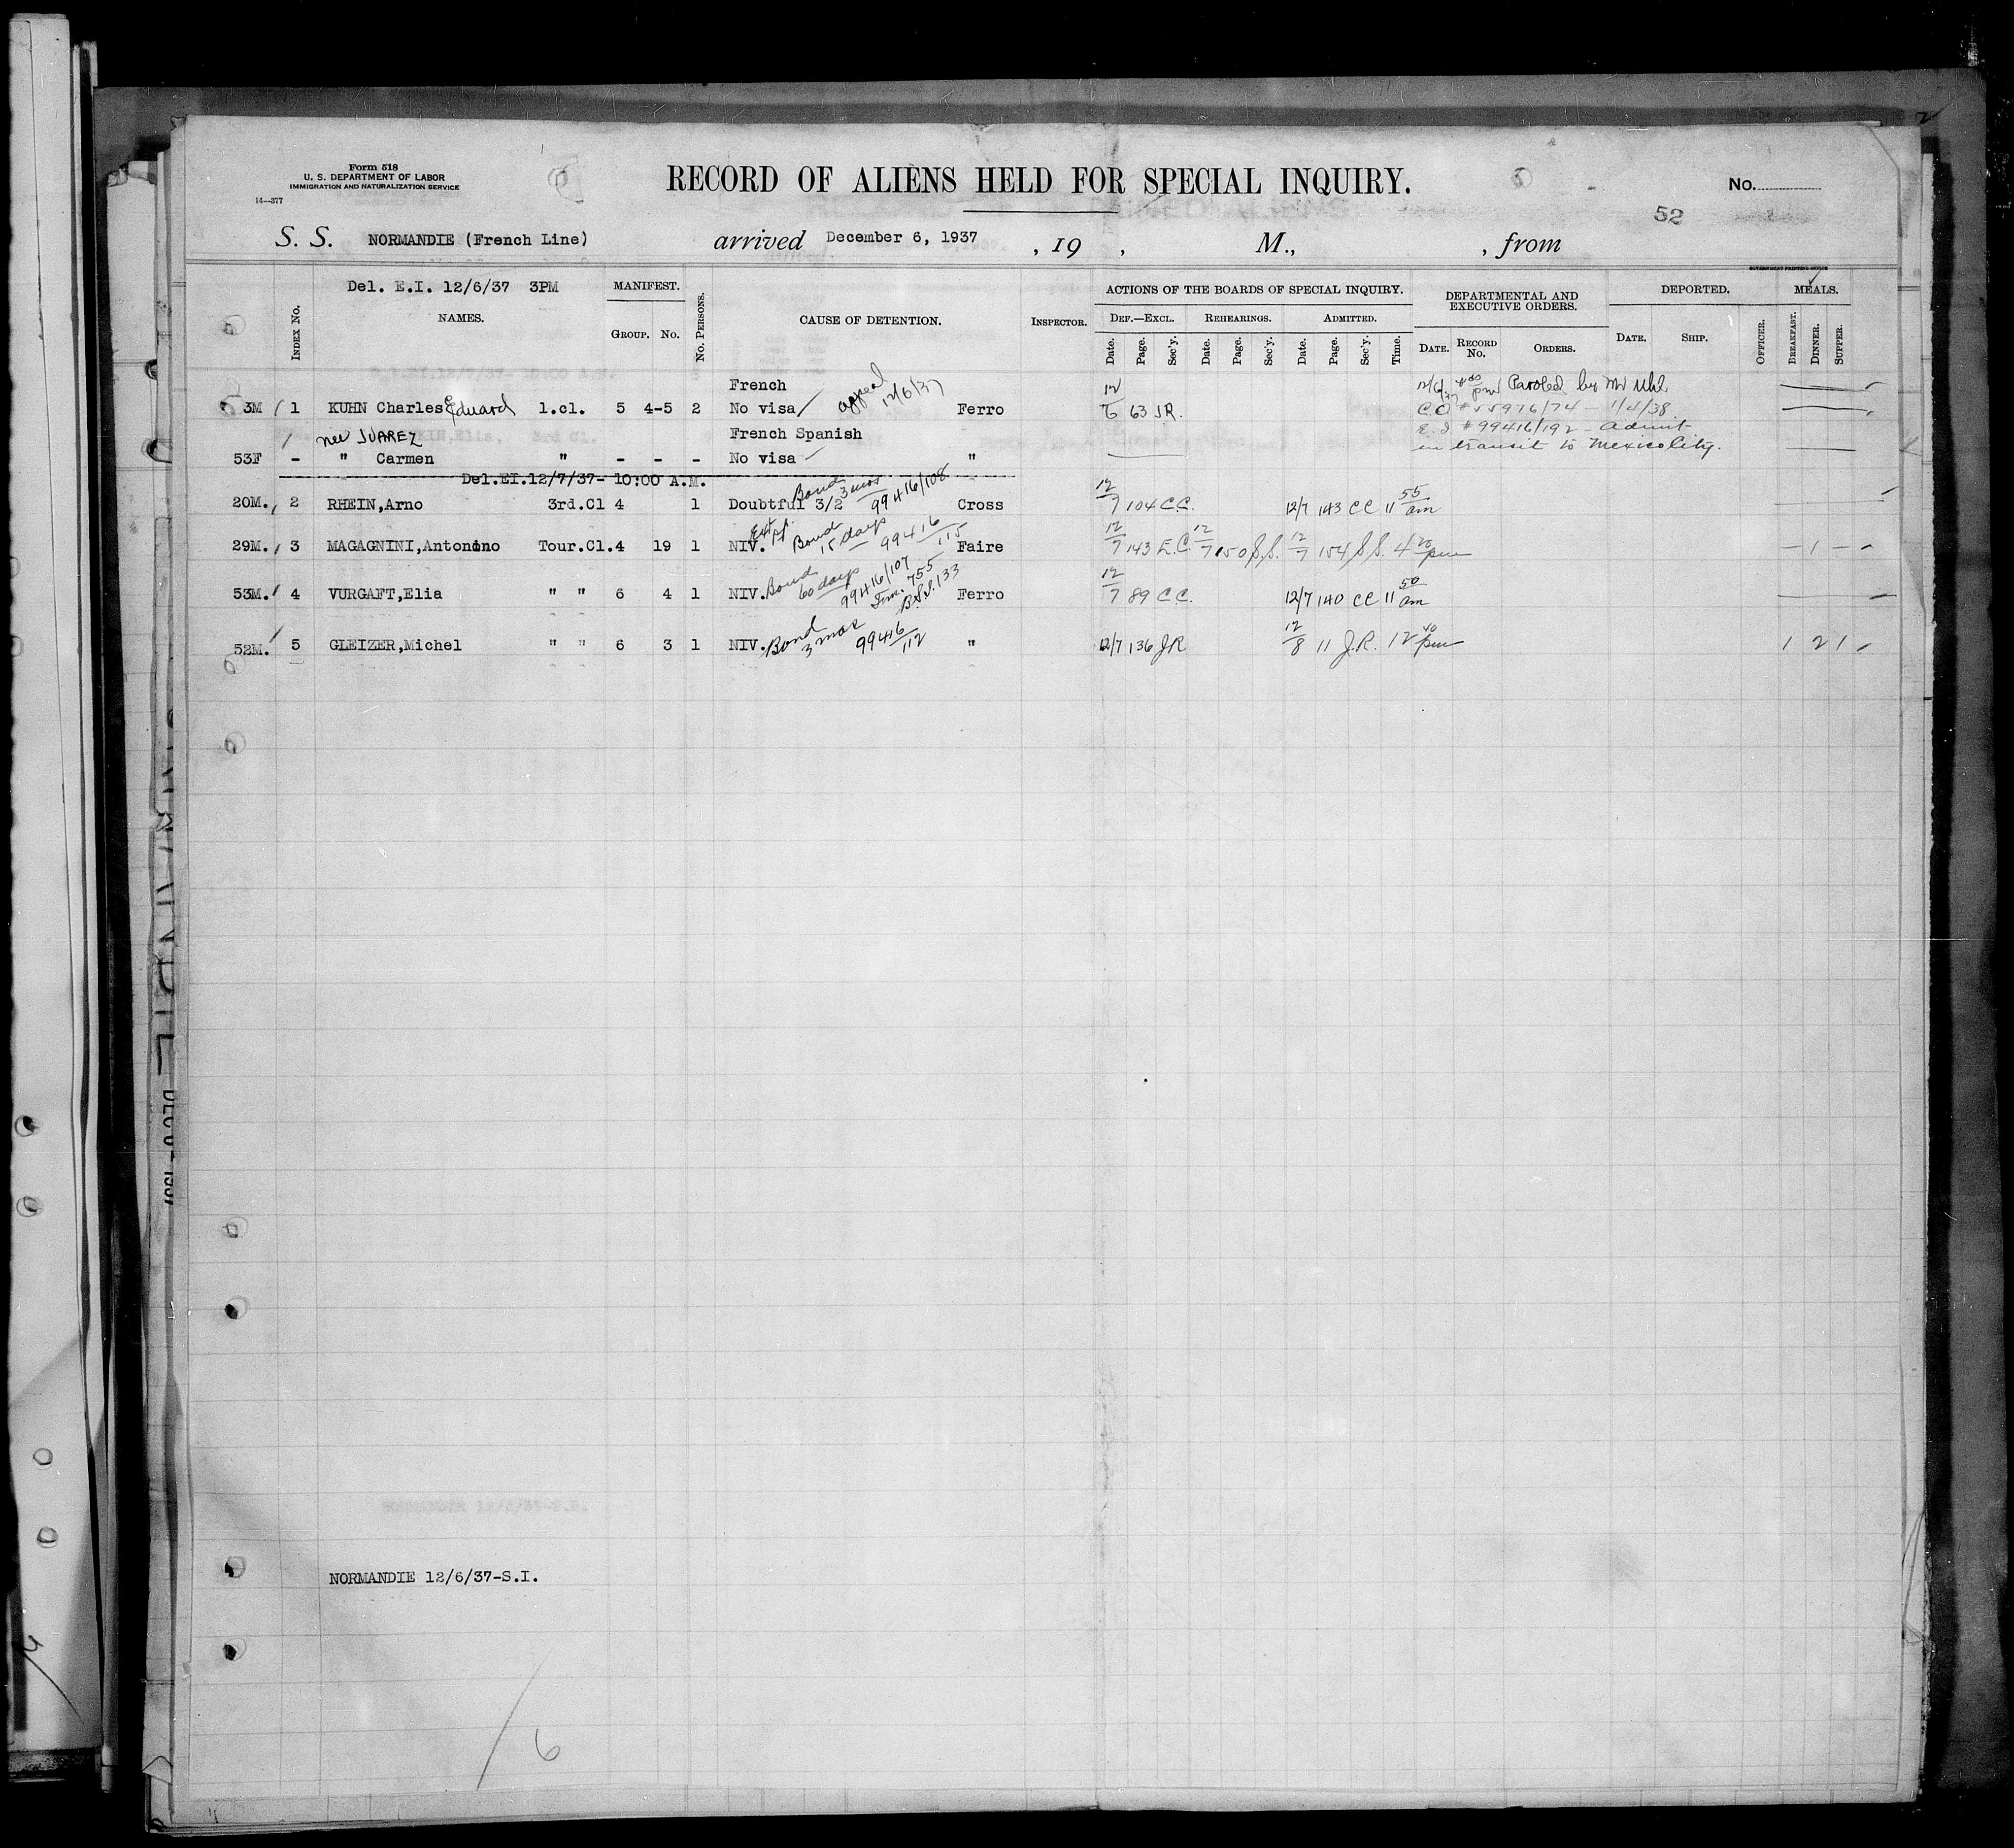 Form 518
U. S. DEPARTMENT OF LABOR
IMMIGRATION AND NATURALIZATION SERVICE
14—377
RECORD OF ALIENS HELD FOR SPECIAL INQUIRY.
No.
52
S. S. NORMANDIE (French Line) arrived December 6, 1937 , 19 , M., , from
GOVERNMENT PRINTING OFFICE
Index No.
Del. E.I. 12/6/37 3PM
NAMES.
MANIFEST.
Group. No.
No. Persons.
CAUSE OF DETENTION.
Inspector.
ACTIONS OF THE BOARDS OF SPECIAL INQUIRY.
Def.—Excl. Rehearings. Admitted.
Date. Page. Sec'y. Date. Page. Sec'y. Date. Page. Sec'y. Time.
DEPARTMENTAL AND
EXECUTIVE ORDERS.
Date. Record No. Orders.
DEPORTED.
Date. Ship.
Officer.
MEALS.
Breakfast. Dinner. Supper.
French appeal 12/6/37 Paroled by Mr Uhl
3M 1 KUHN Charles Eduard 1.cl. 5 4-5 2 No visa Ferro 12/6 63 J.R. CO # 55976/74 - 1/4/38
nee JUAREZ French Spanish E.I. #99416/192 - Admit
53F - " Carmen " - - - No visa " in transit to Mexico City.
Del.EI.12/7/37- 10:00 A.M.
20M. 2 RHEIN,Arno 3rd.Cl 4 1 Doubtful 3/2 Bond 3 mos 99416/108 Cross 12/7 104 C.C. 12/7 143 CC 11 55 am
29M. 3 MAGAGNINI,Antonino Tour.Cl.4 19 1 NIV. Bond 15 days 99416/115 Faire 12/7 143 E.C. 12/7 150 S.S. 12/7 154 S.S. 4 20 pm - 1 -
53M. 4 VURGAFT,Elia " " 6 4 1 NIV. Bond 60 days 99416/107 755 B.S.I. 133 Ferro 12/7 89 C.C. 12/7 140 CC 11 50 am
52M. 5 GLEIZER,Michel " " 6 3 1 NIV. Bond 3 mos 99416/112 " 12/7 136 J.R 12/8 11 J.R. 12 40 pm 1 2 1
NORMANDIE 12/6/37-S.I.
6